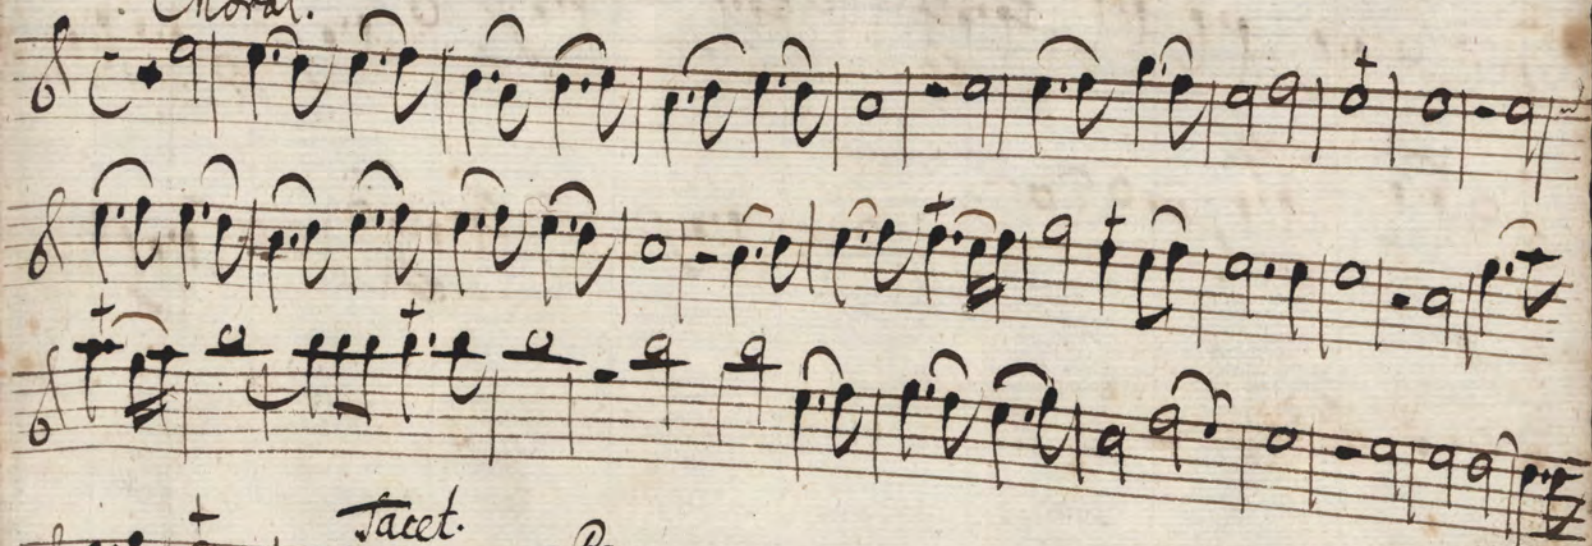 Choral.
Tacet.